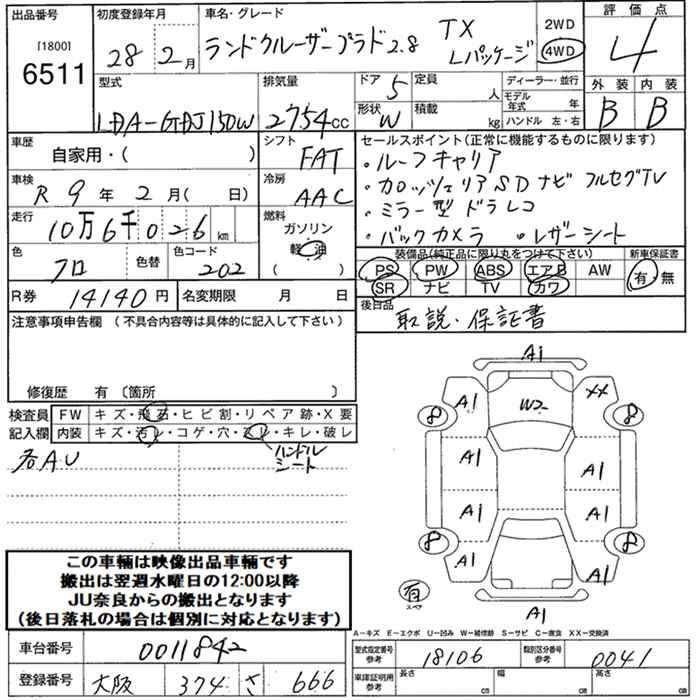 出品番号 [1800] 6511
初度登録年月 28年 2月
車名・グレード ランドクルーザープラド2.8 TX Lパッケージ
2WD 4WD
評価点 4
外装 B 内装 B
型式 LDA-GDJ150W
排気量 2754cc
ドア 5 定員 人
形状 W 積載 kg
ディーラー・並行
モデル年式 年
ハンドル 左・右
車歴 自家用・( )
シフト FAT
車検 R9年 2月( 日)
冷房 AAC
走行 10万6千026km
燃料 ガソリン 軽油 ( )
色 クロ 色替 色コード 202
R券 14140円 名変期限 月 日
セールスポイント(正常に機能するものに限ります)
・ルーフキャリア
・カロッツェリアSDナビ フルセグTV
・ミラー型ドラレコ
・バックカメラ ・レザーシート
装備品(純正品に限り丸をつけて下さい) 新車保証書
PS PW ABS エアB AW 有・無
SR ナビ TV カワ
後日品 取説・保証書
注意事項申告欄 (不具合内容等は具体的に記入して下さい)
修復歴 有 〔箇所 〕
検査員記入欄
FW キズ・飛石・ヒビ割・リペア跡・X要
内装 キズ・汚レ・コゲ・穴・スレ・キレ・破レ
ハンドル
シート
各AU
A1
A1 W2 XX
8 8
A1 A1
A1 A1
8 8
A1 A1
有 スペア
A1
この車輌は映像出品車輌です
搬出は翌週水曜日の12:00以降
JU奈良からの搬出となります
(後日落札の場合は個別に対応となります)
A−キズ E−エクボ U−凹み W−補修跡 S−サビ C−腐食 XX−交換済
車台番号 0011842
型式指定番号 参考 18106 類別区分番号 参考 0041
登録番号 大阪 374 さ 666
車庫証明用 参考 長さ cm 幅 cm 高さ cm